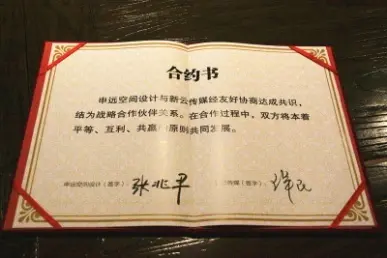 合约书
申远空间设计与新云传媒经友好协商达成共识，
结为战略合作伙伴关系。在合作过程中，双方将本着
平等、互利、共赢 原则共同发展。
申远空间设计（签字） 张兆平
传媒（签字）